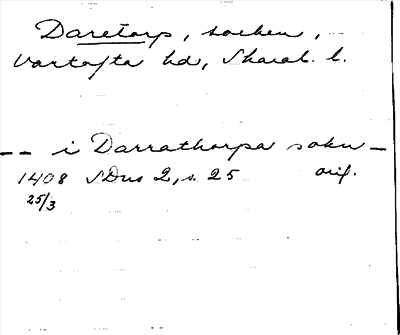 Daretorp, socken,
Vartofta hd, Skarab. l.
-- i Darrathorpa sokn -
1408 SDns 2, s. 25 orig.
25/3